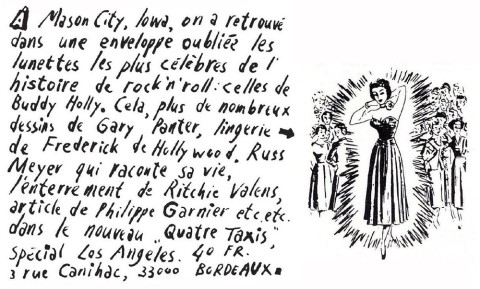 À Mason City, Iowa, on a retrouvé
dans une enveloppe oubliée les
lunettes les plus célèbres de l'
histoire de rock'n'roll: celles de
Buddy Holly. Cela, plus de nombreux
dessins de Gary, Panter, lingerie →
de Frederick de Hollywood, Russ
Meyer qui raconte sa vie,
l'enterrement de Ritchie Valens,
article de Philippe Garnier etc.etc.
dans le nouveau „Quatre Taxis”
Spécial Los Angeles. 40 FR.
3 rue Canihac, 33000 BORDEAUX.